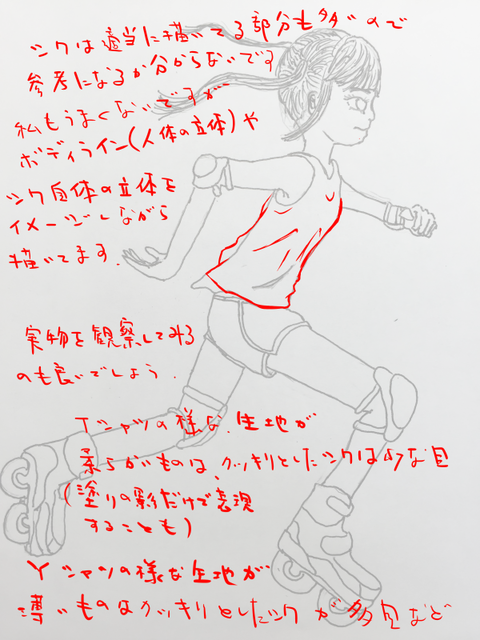 シワは適当に描いてる部分も多いので
参考になるか分からないです
私もうまくないですが
ボディライン(人体の立体)や
シワ自体の立体を
イメージしながら
描いてます.
実物を観察してみる
のも良いでしょう.
Tシャツの様な、生地が
柔らかいものは、クッキリとしたシワは少な目
(塗りの影だけで表現
することも)
Yシャツの様な生地が
薄いものはクッキリとしたシワが多目など